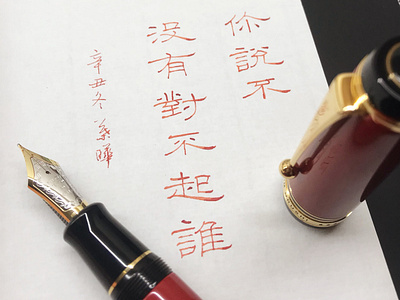 你說不
没有對不起誰
辛丑冬